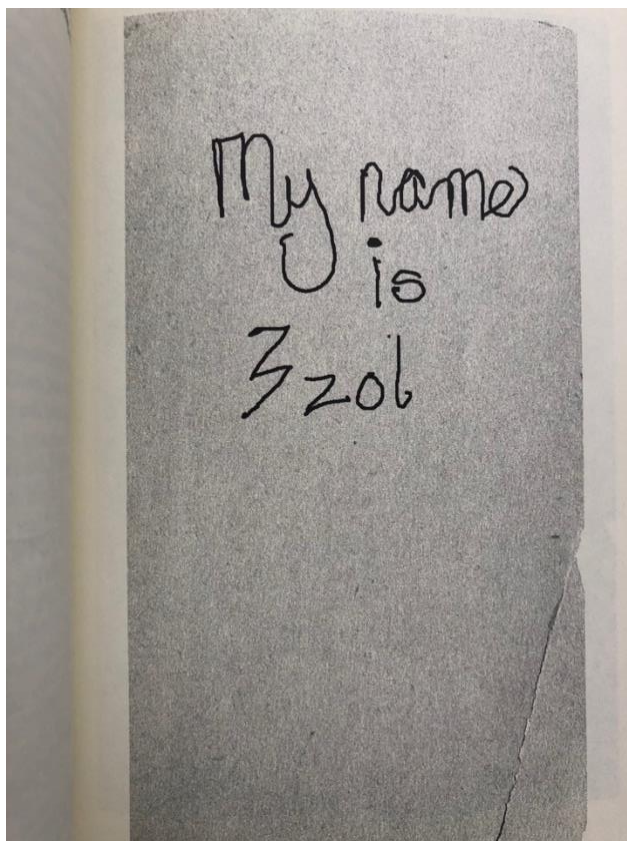 My name
is
3zol